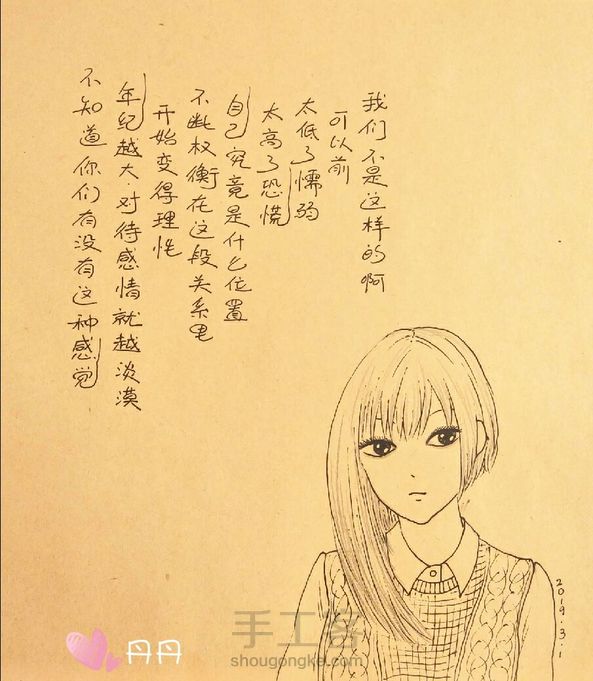 不知道你们有没有这种感觉
年纪越大.对待感情就越淡漠
开始变得理性
不断权衡在这段关系里
自己究竟是什么位置
太高了恐慌
太低了懦弱
可以前
我们不是这样的啊
2019.3.1
丹丹
手工客
shougongke.com